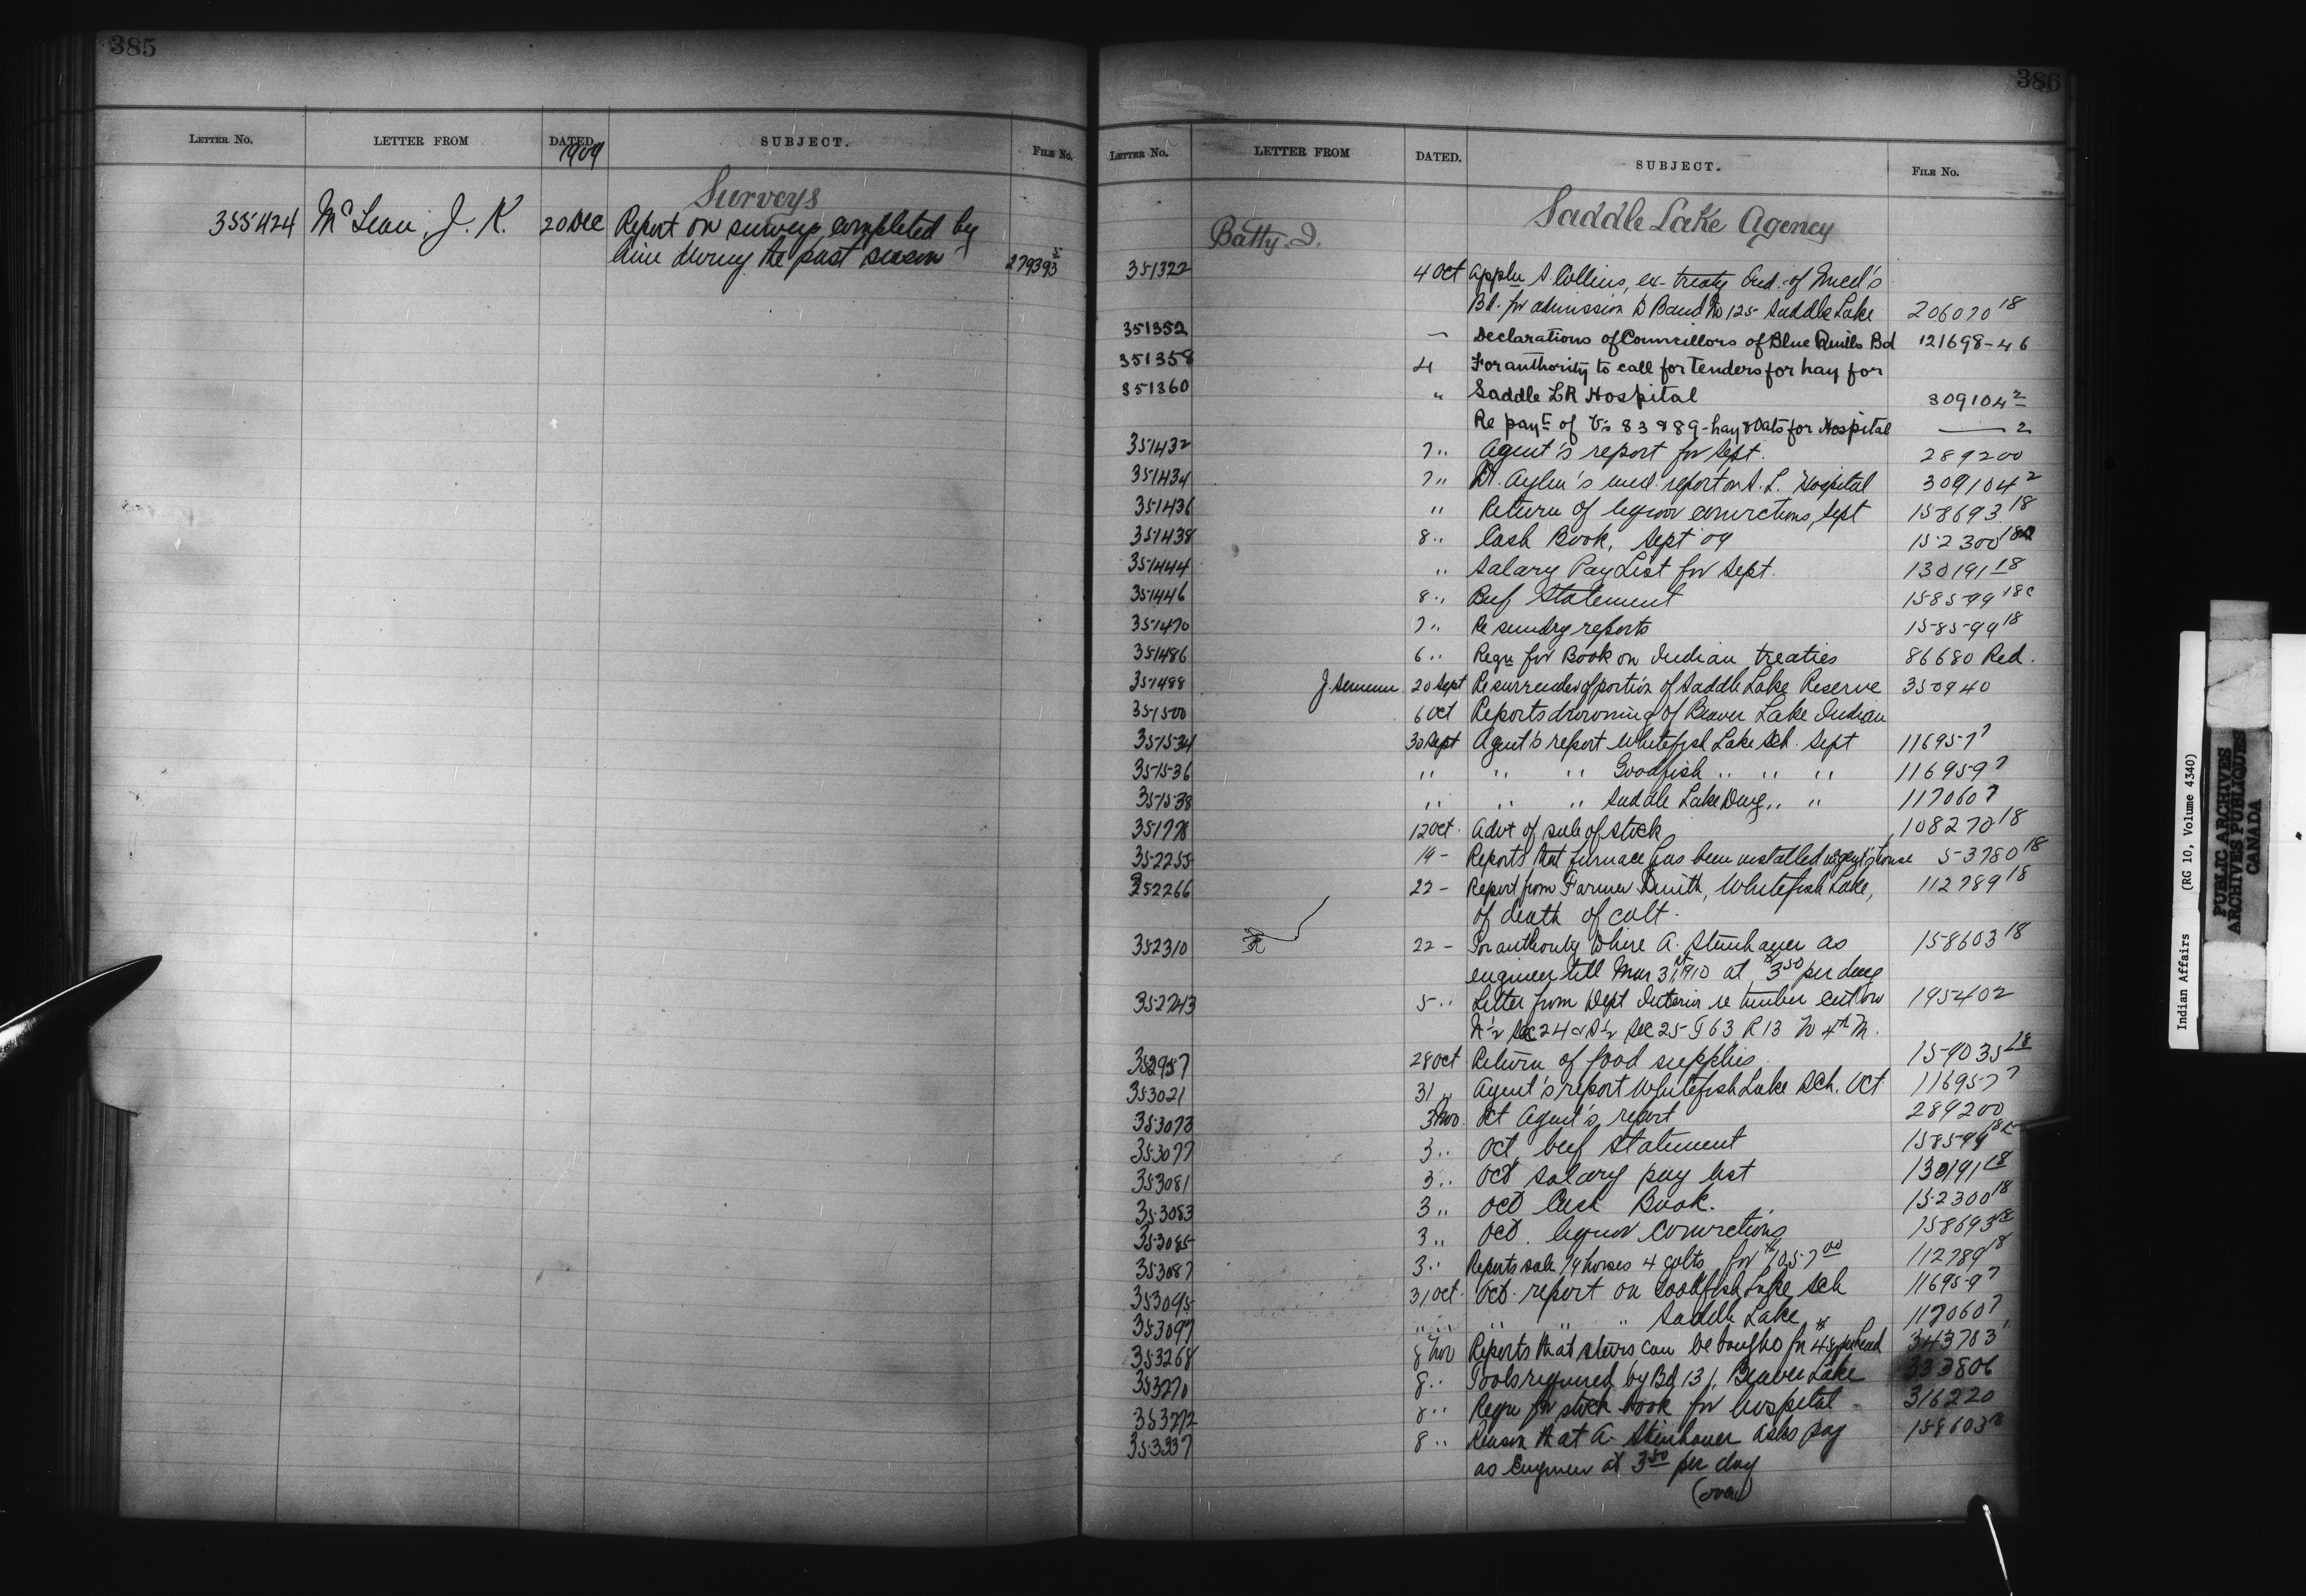 385
LETTER NO. LETTER FROM DATED. SUBJECT. FILE NO.
1909
Surveys
355424 McLean, J. K. 20 Dec Report on surveys completed by
him during the past season 279393 5
386
LETTER NO. LETTER FROM DATED. SUBJECT. FILE NO.
Saddle Lake Agency
Batty. J.
351322 4 Oct Appln S. Collins, ex-treaty Ind. of Enoch's
Bd. for admission to Band No 125 Saddle Lake 206070 18
351352 — Declarations of Councillors of Blue Quills Bd 121698-46
351358 4 For authority to call for tenders for hay for
351360 " Saddle LR Hospital 309104 2
Re payt of Vs 83 & 89 - hay & Oats for Hospital —— 2
351432 7 " Agent's report for Sept. 289200
351434 7 " Dr. Aylen's med. report on S. L. Hospital 309104 2
351436 " Return of liquor convictions, Sept 158693 18
351438 8 " Cash Book, Sept 09 152300 18
351444 " Salary Pay List for Sept. 130191 18
351446 8 " Beef Statement 158599 18c
351470 7 " Re sundry reports 158599 18
351486 6 " Reqn for Book on Indian treaties 86680 Red.
351488 J. 20 Sept Re surrender of portion of Saddle Lake Reserve 350940
351500 6 Oct Reports drowning of Beaver Lake Indian
351534 30 Sept Agent's report Whitefish Lake Sch. Sept 116957 7
351536 " " " Goodfish " " " 116959 7
351538 " " " Saddle Lake " " 117060 7
351778 12 Oct. Advt of sale of stock 108270 18
352255 19 - Reports that furnace has been installed Agent's house 53780 18
352266 22 - Report from Farmer Smith, Whitefish Lake, 112789 18
of death of colt.
352310 22 - For authority to hire A. Steinhauer as 158603 18
engineer till Mar 31st, 1910 at $3.50 per day
352743 5 " Letter from Dept Interior re timber cut on 195402
N ½ Sec 24 & S ½ Sec 25 T 63 R 13 W 4th M.
352957 28 Oct Return of food supplies 159035 18
353021 31 " Agent's report Whitefish Lake Sch. Oct 116957 7
353073 3 Nov. Oct Agent's report 289200
353077 3 " Oct, beef Statement 158599 18c
353081 3 " Oct salary pay list 130191 18
353083 3 " Oct Cash Book. 152300 18
353085 3 " Oct. liquor convictions 158693 18
353087 3 " Reports sale 19 horses 4 colts for $1057.00 112789 18
353095 31 Oct. Oct. report on Goodfish Lake Sch 116959 7
353097 " " " " " Saddle Lake " 117060 7
353268 8 Nov Reports that steers can be bought for $48 per head 343783
353270 8 " Tools required by Bd 131, Beaver Lake 333806
353272 8 " Reqn for stock book for hospital 316220
353337 8 " Reason that A. Steinhauer asks pay 158603 18
as Engineer at 3.50 per day
(over)
Indian Affairs (RG 10, Volume 4340)
PUBLIC ARCHIVES
ARCHIVES PUBLIQUES
CANADA